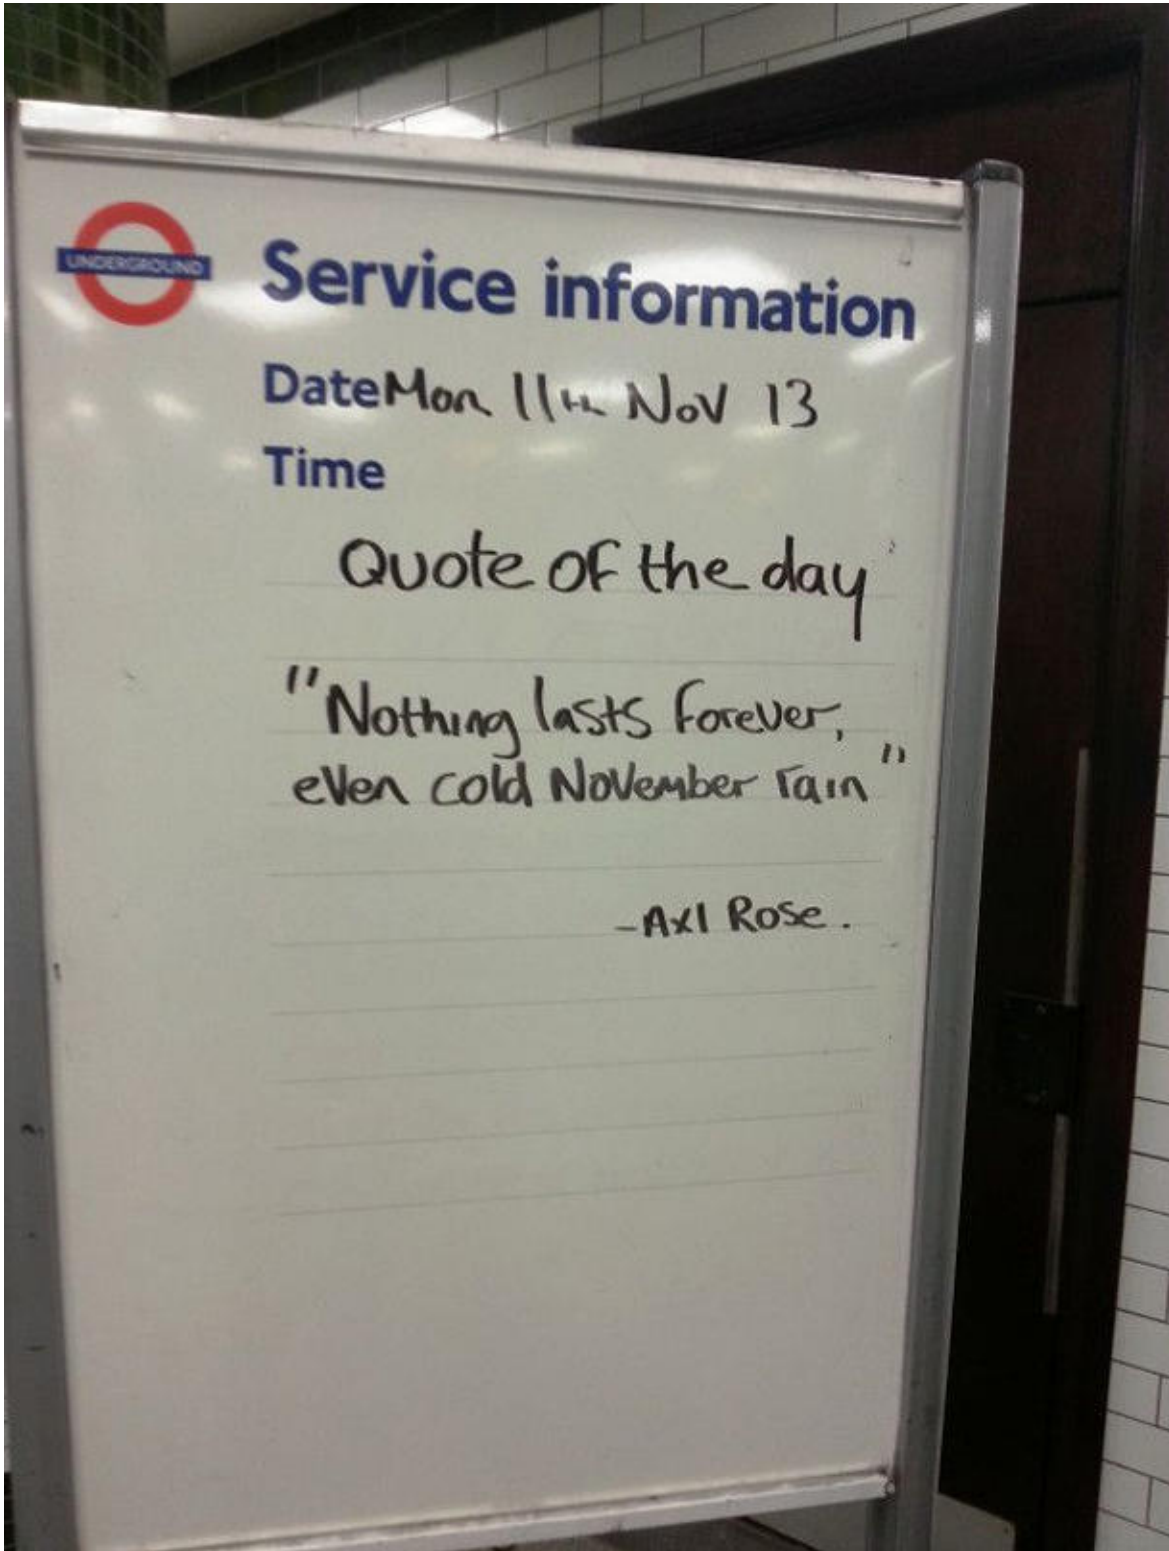 UNDERGROUND
Service information
Date Mon 11th Nov 13
Time
Quote of the day
"Nothing lasts forever,
even cold November rain"
-Axl Rose.